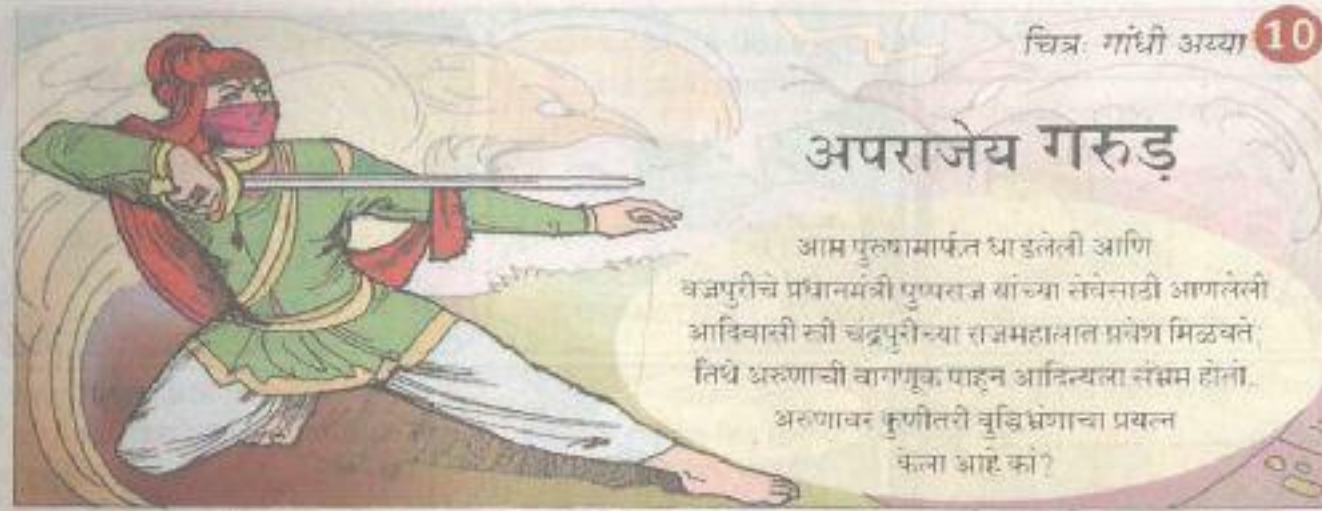 चित्र: गांधी अय्या 10
अपराजेय गरुड़
आप्त पुरुषामार्फत धाडलेली आणि
वज्रपुरीचे प्रधानमंत्री पुष्पराज यांच्या सेवेसाठी आणलेली
आदिवासी स्त्री चंद्रपुरीच्या राजमहालात प्रवेश मिळवते;
तिथे अरुणाची वागणूक पाहून आदित्यला संभ्रम होतो.
अरुणावर कुणीतरी बुद्धिभ्रंशाचा प्रयत्न
केला आहे कां?